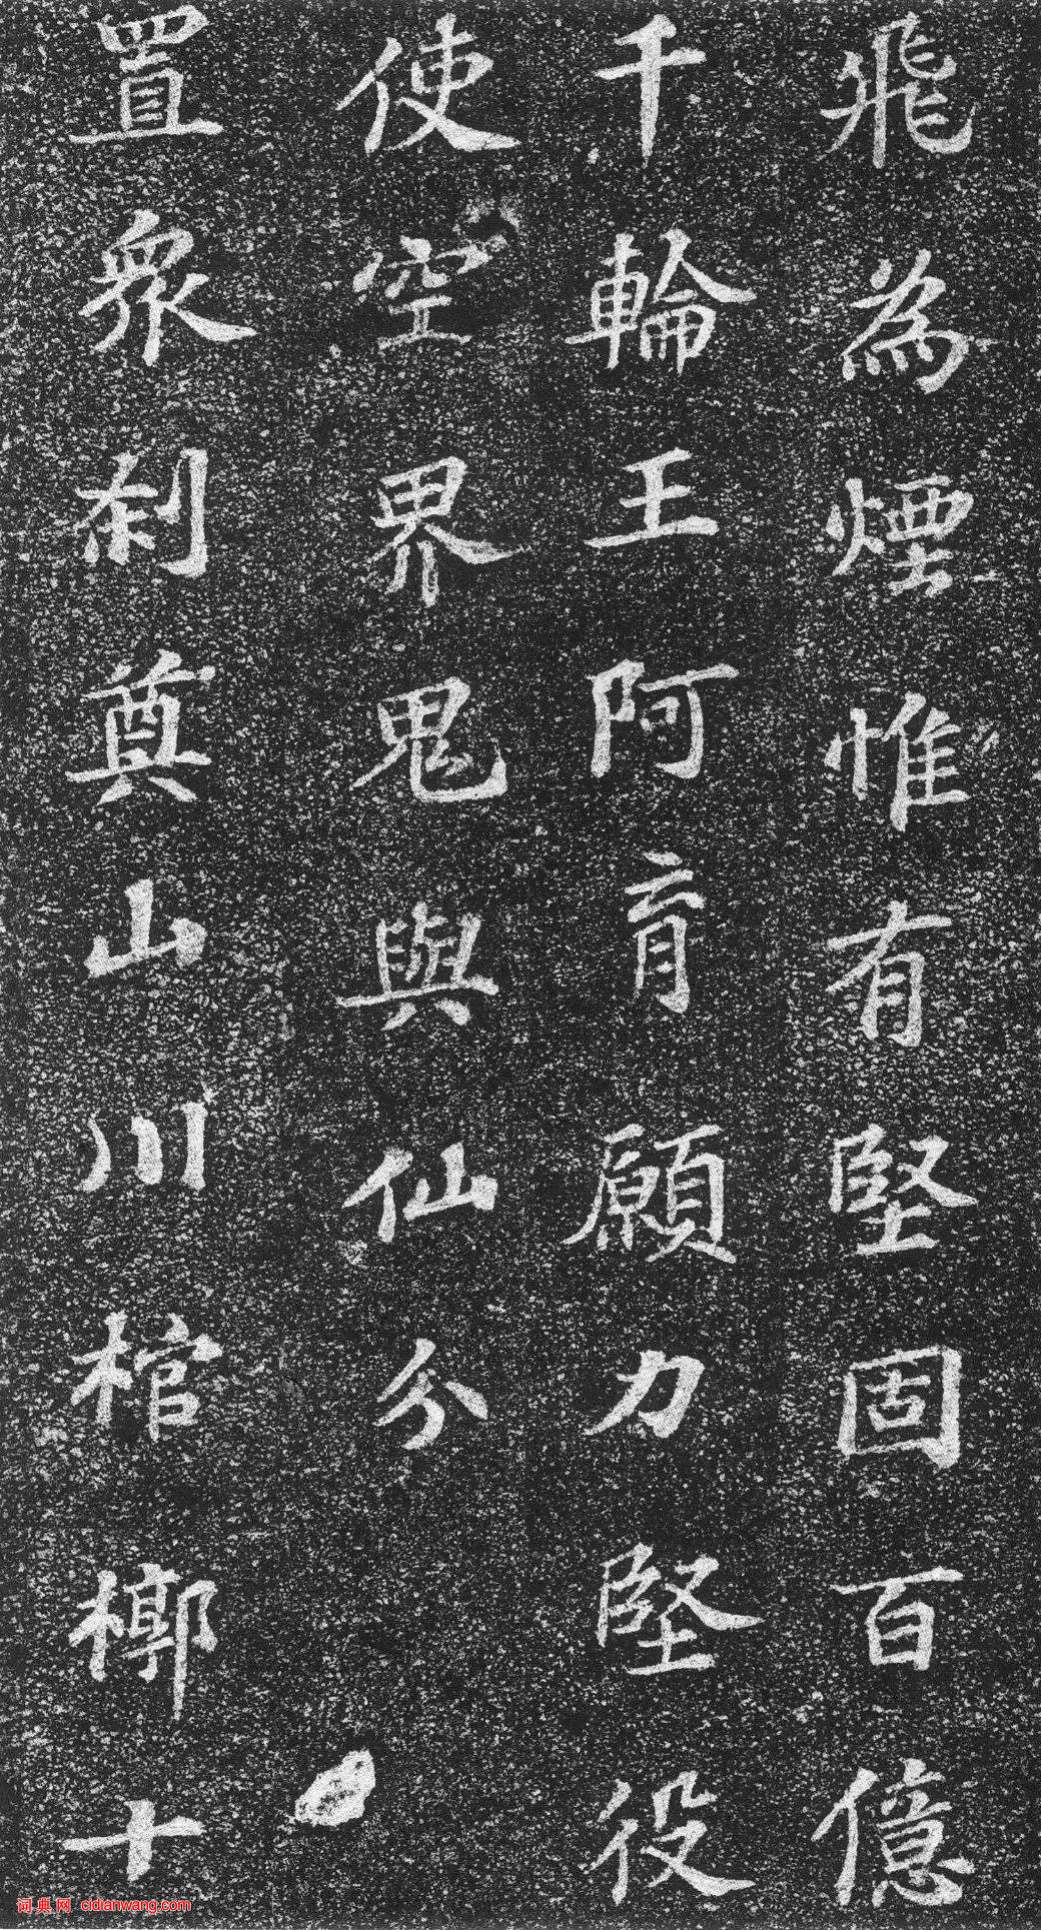 飛為煙惟有堅固百億
千輪王阿育願力堅役
使空界鬼與仙分
置衆刹奠山川棺槨十
词典网 cidianwang.com